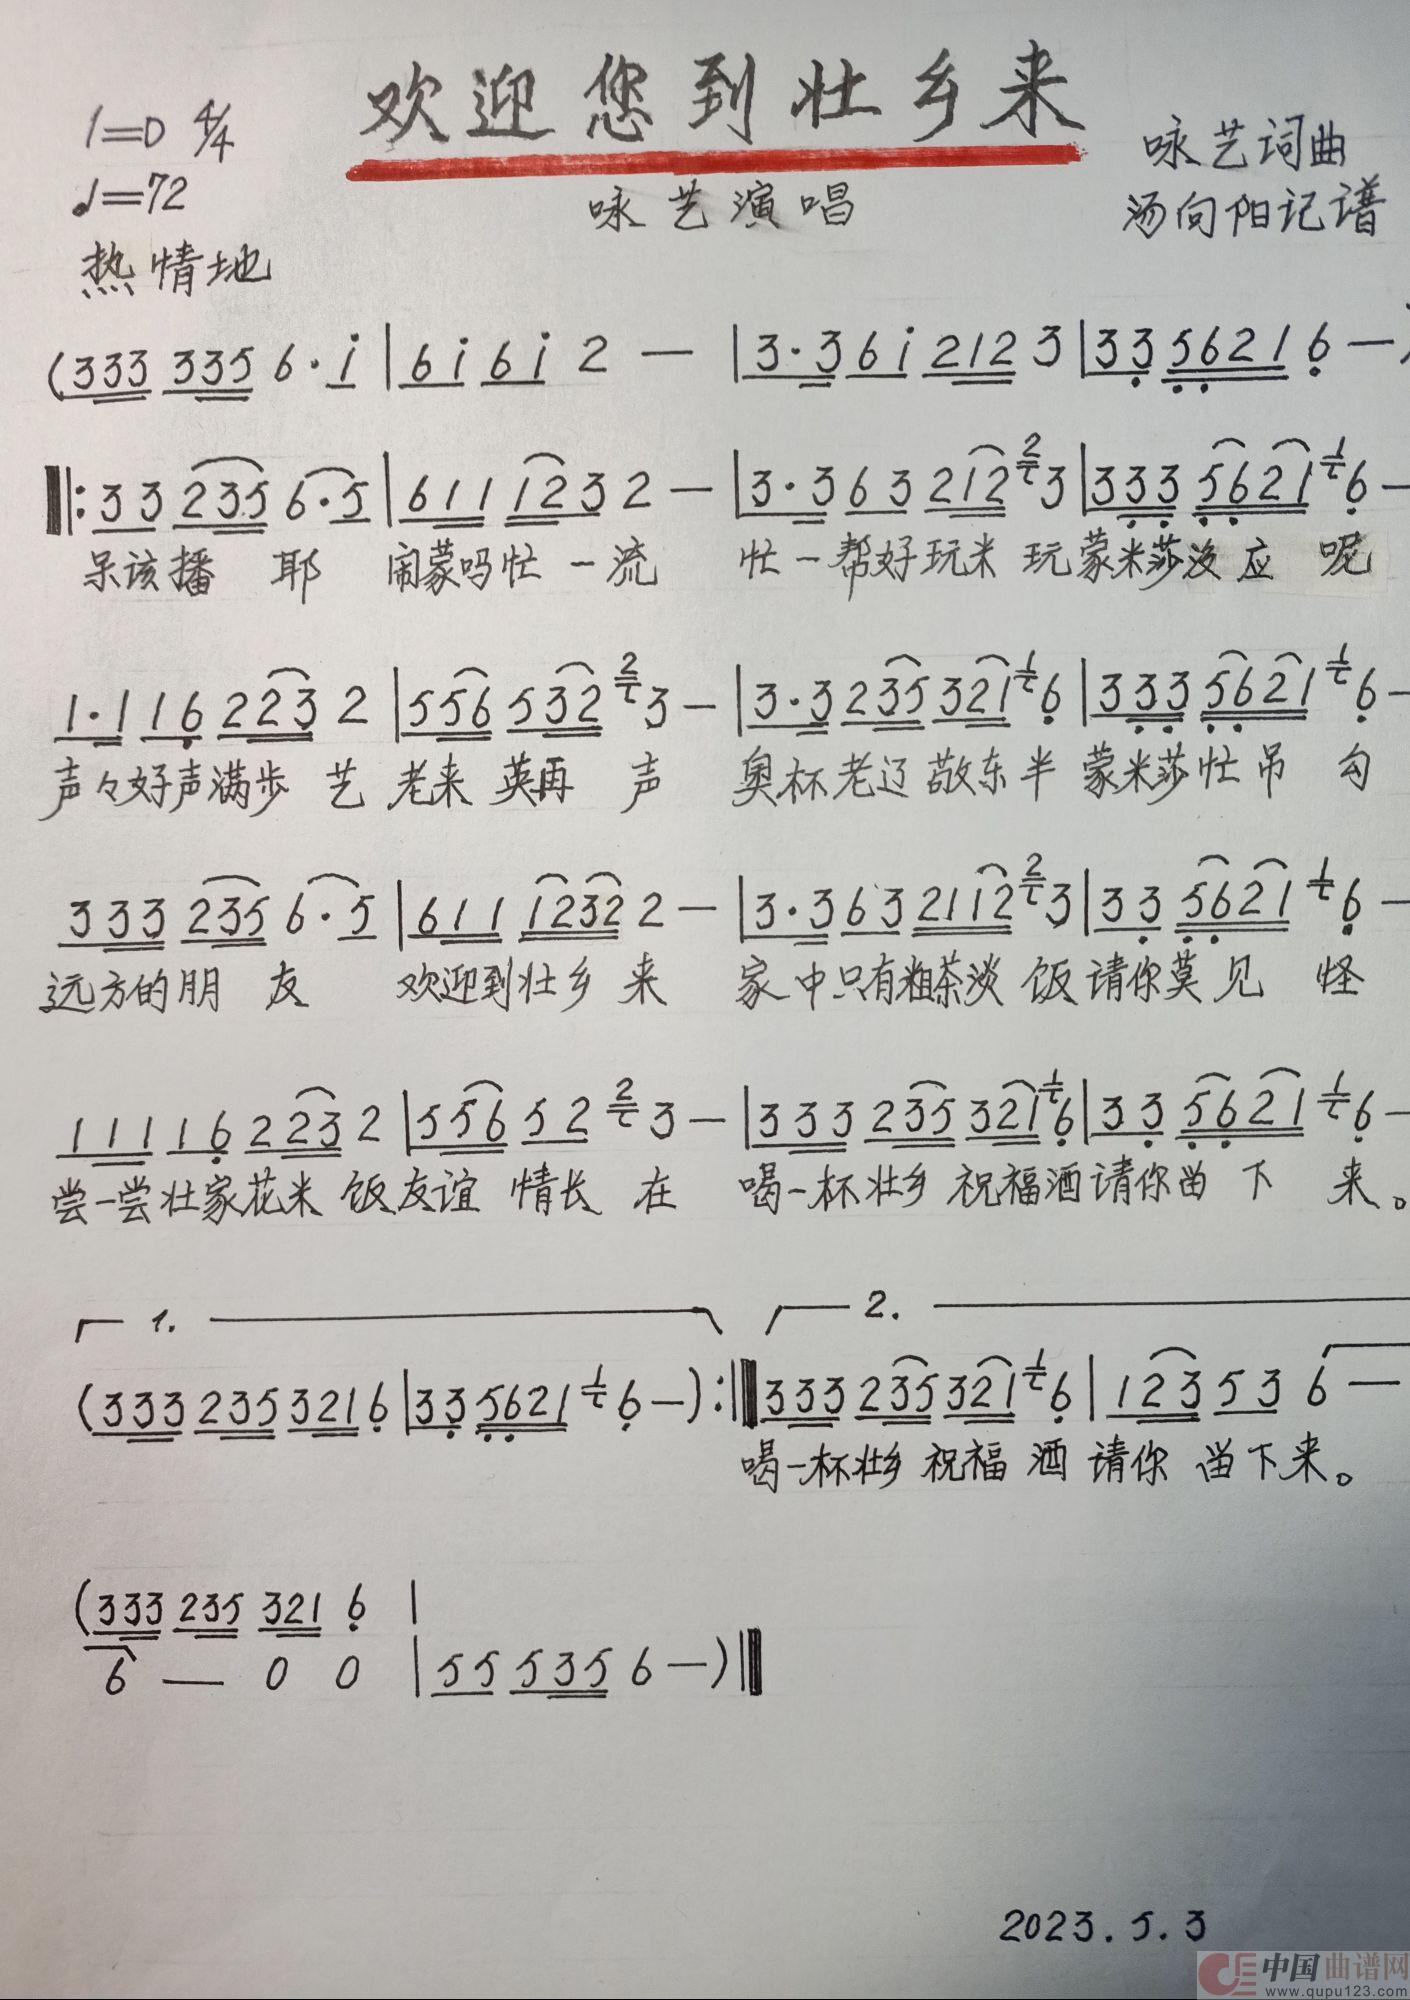 欢迎您到壮乡来
1=D 4/4
♩=72
热情地
咏艺演唱
咏艺词曲
汤向阳记谱
(333 335 6·i | 6i 6i 2 — | 3·3 6i 212 3 | 33 5621 6 —)
‖: 33 235 6·5 | 611 123 2 — | 3·3 63 212 2 3 | 333 5621 1 6 —
呆该播 耶 闹蒙吗忙一流 忙一帮好玩米 玩蒙米莎没应 呢
1·1 16 223 2 | 556 532 2 3 — | 3·3 235 321 1 6 | 333 5621 1 6 —
声々好声满步 艺 老来 英再 声 奥杯老辽敬东半 蒙米莎忙吊 勾
333 235 6·5 | 611 1232 2 — | 3·3 63 2112 2 3 | 33 5621 1 6 —
远方的朋 友 欢迎到壮乡 来 家中只有粗茶淡 饭请你莫见 怪
111 16 223 2 | 556 52 2 3 — | 333 235 321 1 6 | 33 5621 1 6 —
尝一尝壮家花米 饭友谊 情长 在 喝一杯壮乡 祝福酒请你留 下 来。
1. 2.
(333 235 321 6 | 33 5621 1 6 —) :‖ 333 235 321 1 6 | 123 53 6 —
喝一杯壮乡 祝福 酒 请你 留下来。
(333 235 321 6 |
6 — 0 0 | 55 535 6 —)‖
2023.5.3
中国曲谱网
www.qupu123.com